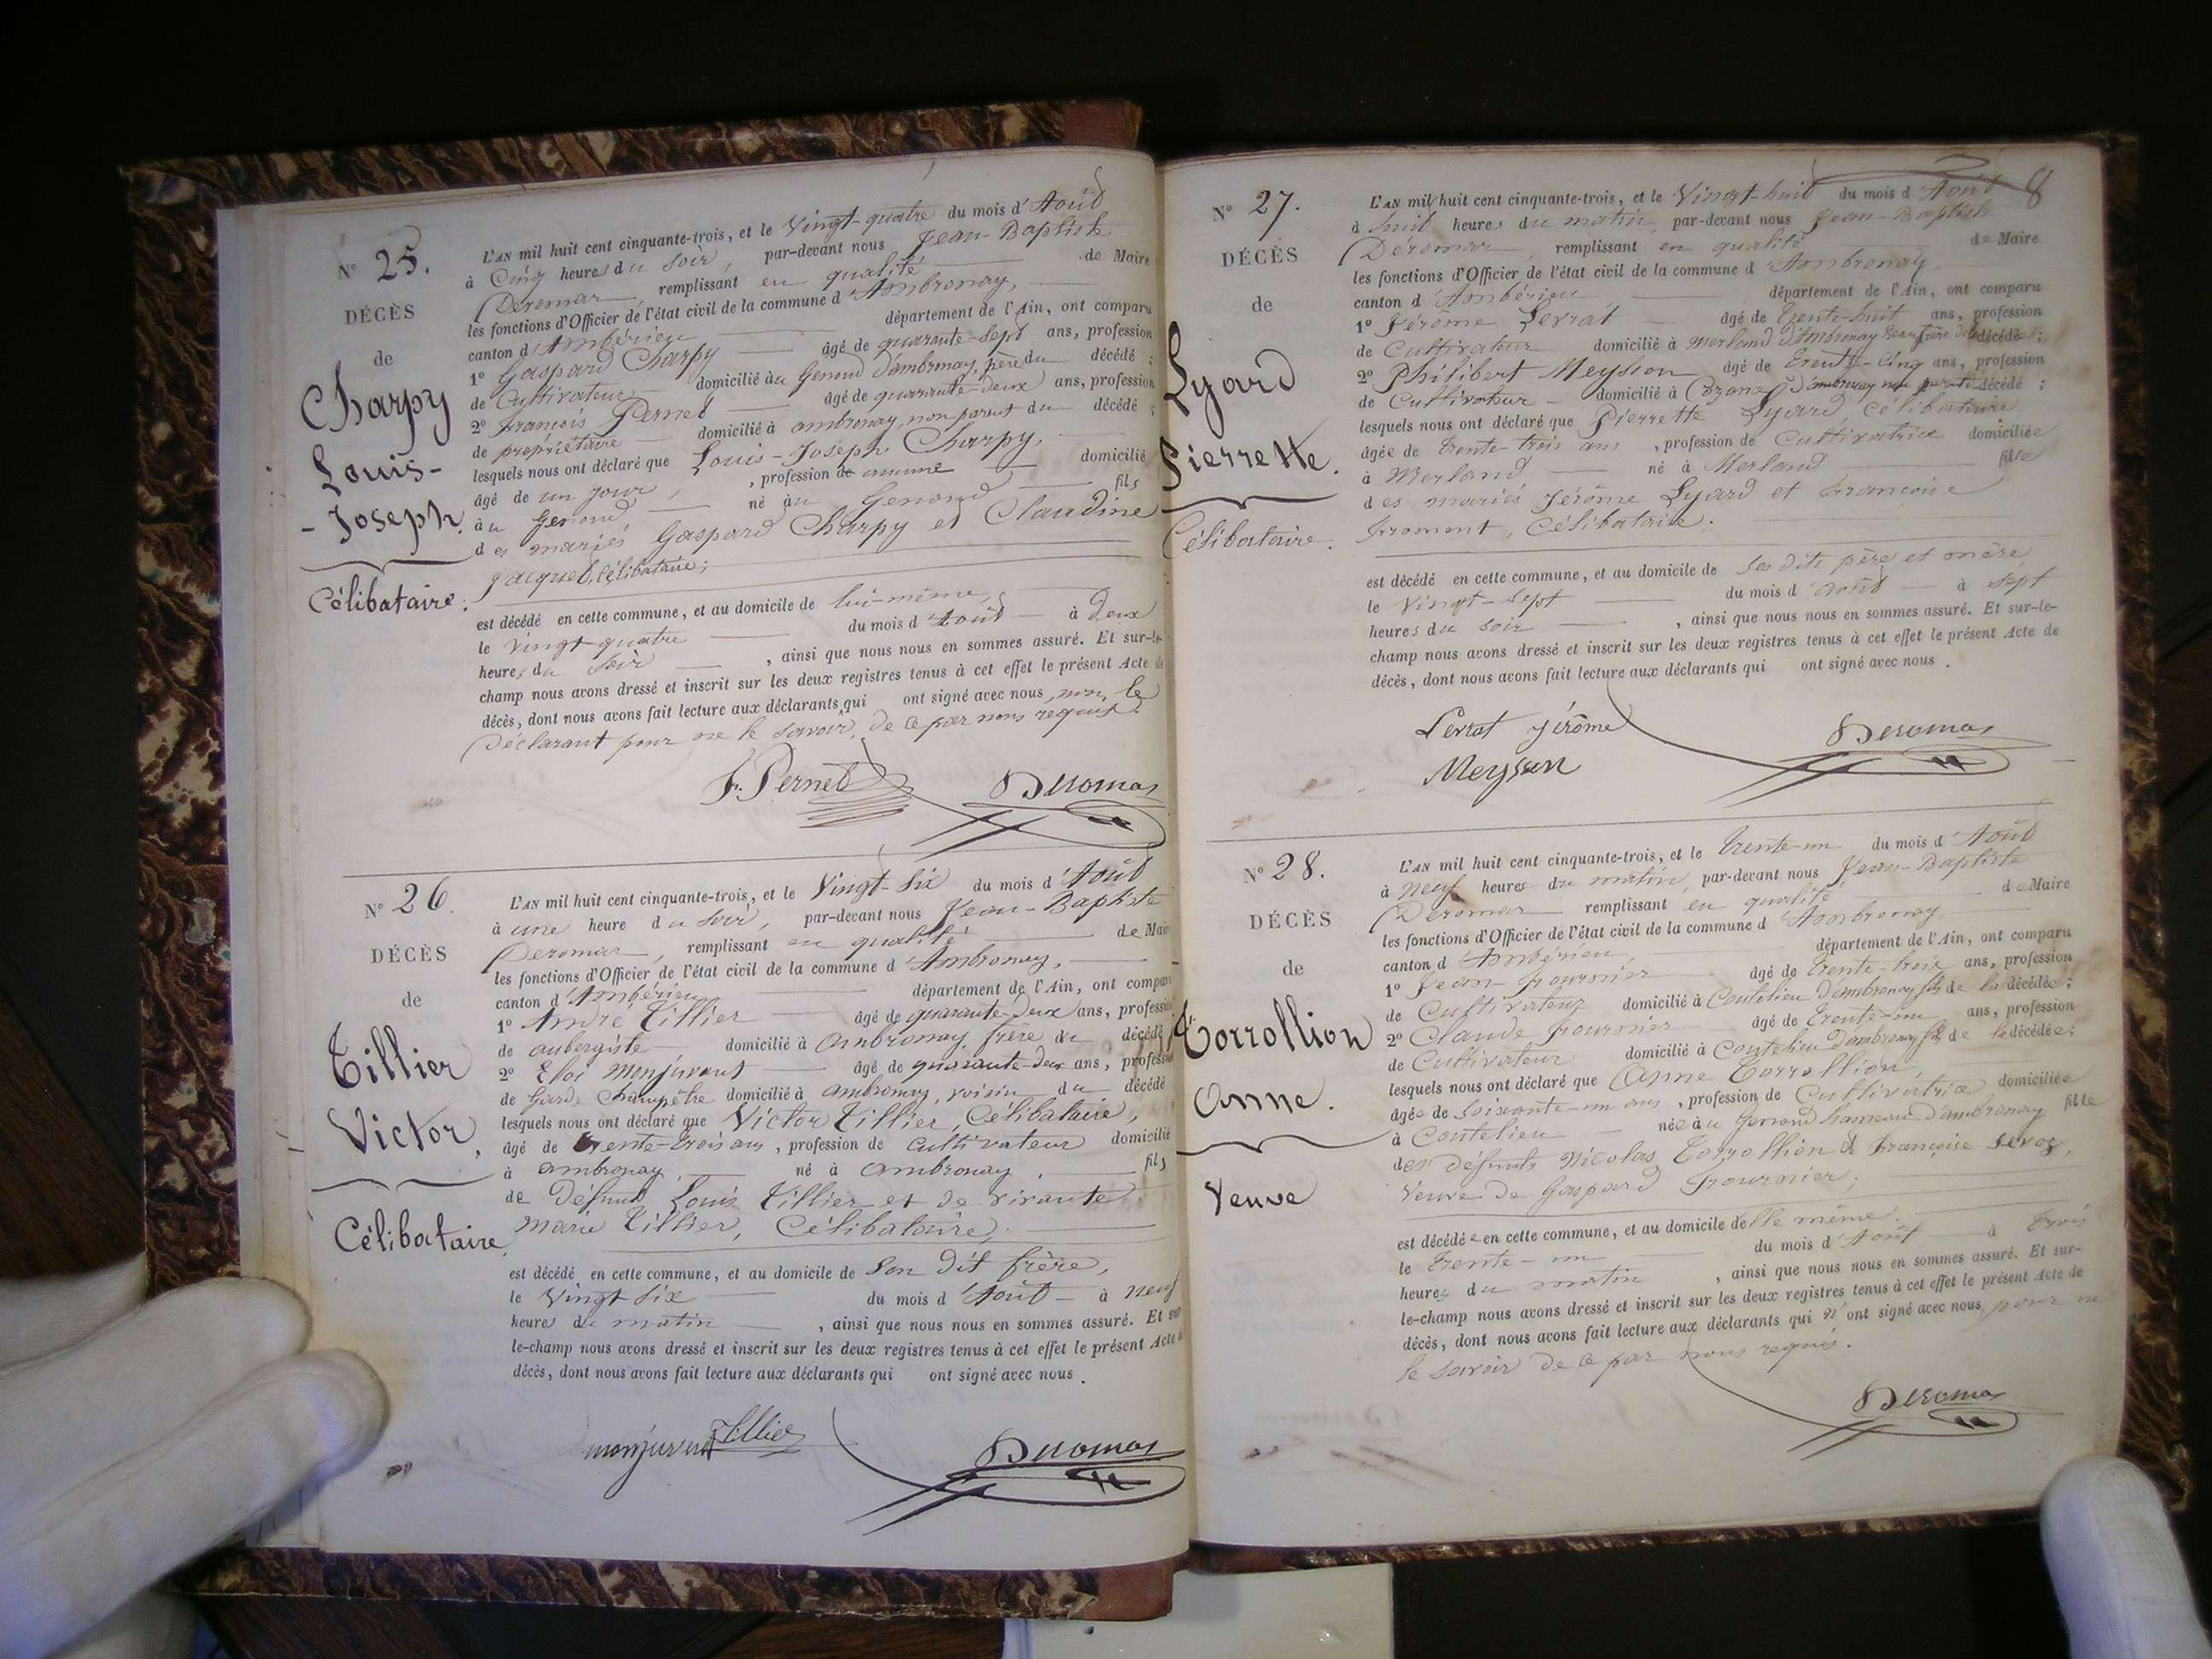 N° 25.
DÉCÈS
de
Charpy
Louis-
-Joseph.
Célibataire.
L'AN mil huit cent cinquante-trois, et le Vingt-quatre du mois d'Août
à Cinq heures du soir, par-devant nous Jean-Baptiste
Deromas, remplissant en qualité de Maire
les fonctions d'Officier de l'état civil de la commune d'Ambronay,
canton d'Ambérieu département de l'Ain, ont comparu
1° Gaspard Charpy âgé de quarante-sept ans, profession
de Cultivateur domicilié au Genoud d'ambronay, père du décédé ;
2° François Pernet âgé de quarante-deux ans, profession
de propriétaire domicilié à ambronay, non parent du décédé ;
lesquels nous ont déclaré que Louis-Joseph Charpy,
âgé de un jour, , profession de aucune domicilié
à au Genoud né au Genoud fils
des mariés Gaspard Charpy et Claudine
Jacquet, Célibataire ;
est décédé en cette commune, et au domicile de lui-même,
le vingt-quatre du mois d'Août à deux
heures du soir , ainsi que nous nous en sommes assuré. Et sur-le-
champ nous avons dressé et inscrit sur les deux registres tenus à cet effet le présent Acte de
décès, dont nous avons fait lecture aux déclarants qui ont signé avec nous, non le
Déclarant pour ne le savoir, de ce par nous requis.
F. Pernet Deromas
N° 26.
DÉCÈS
de
Tillier
Victor,
Célibataire,
L'AN mil huit cent cinquante-trois, et le Vingt-Six du mois d'Août
à une heure du soir, par-devant nous Jean-Baptiste
Deromas, remplissant en qualité de Mai
les fonctions d'Officier de l'état civil de la commune d'Ambronay,
canton d'Ambérieu département de l'Ain, ont compar
1° André Tillier âgé de quarante-deux ans, profession
de aubergiste domicilié à Ambronay, frère du décédé
2° Eloi Monjuvent âgé de quarante-deux ans, profession
de Garde Champêtre domicilié à ambronay, voisin du décédé
lesquels nous ont déclaré que Victor Tillier, Célibataire,
âgé de trente-trois ans, profession de Cultivateur domicilié
à ambronay, né à Ambronay, fils
de Défunt Louis Tillier et de vivante
Marie Tillier, Célibataire,
est décédé en cette commune, et au domicile de son dit frère,
le Vingt Six du mois d'Août à neuf
heures du matin , ainsi que nous nous en sommes assuré. Et sur
le-champ nous avons dressé et inscrit sur les deux registres tenus à cet effet le présent Acte d
décès, dont nous avons fait lecture aux déclarants qui ont signé avec nous.
monjuvent Tillier
Deromas
8
N° 27.
DÉCÈS
de
Lyard
Pierrette.
Célibataire.
L'AN mil huit cent cinquante-trois, et le Vingt-huit du mois d'Août
à huit heures du matin, par-devant nous Jean-Baptiste
Deromas, remplissant en qualité de Maire
les fonctions d'Officier de l'état civil de la commune d'Ambronay,
canton d'Ambérieu département de l'Ain, ont comparu
1° Jérôme Levrat âgé de trente-huit ans, profession
de Cultivateur domicilié à Merland d'Ambronay beau frère de la décédée ;
2° Philibert Meysson âgé de trente-Cinq ans, profession
de Cultivateur domicilié à d'ambronay non parent décédé ;
lesquels nous ont déclaré que Pierrette Lyard, célibataire
âgée de trente-trois ans , profession de Cultivatrice domiciliée
à Merland né à Merland fille
des mariés Jérôme Lyard et Françoise
Froment, Célibataire.
est décédé en cette commune, et au domicile de ses dits père et mère,
le Vingt-Sept du mois d'Août à sept
heures du soir , ainsi que nous nous en sommes assuré. Et sur-le-
champ nous avons dressé et inscrit sur les deux registres tenus à cet effet le présent Acte de
décès, dont nous avons fait lecture aux déclarants qui ont signé avec nous.
Levrat Jérôme Deromas
Meysson
N° 28.
DÉCÈS
de
Torrollion
Anne.
Veuve
L'AN mil huit cent cinquante-trois, et le trente-un du mois d'Août
à Neuf heures du matin, par-devant nous Jean-Baptiste
Deromas remplissant en qualité de Maire
les fonctions d'Officier de l'état civil de la commune d'Ambronay
canton d'Ambérieu, département de l'Ain, ont comparu
1° Jean Fournier âgé de trente-trois ans, profession
de Cultivateur domicilié à Coutelieu d'ambronay fils de la décédée ;
2° Claude Fournier âgé de trente-un ans, profession
de Cultivateur domicilié à Coutelieu d'ambronay fils de la décédée ;
lesquels nous ont déclaré que Anne Torrollion,
âgée de soixante-un ans , profession de Cultivatrice domiciliée
à Coutelieu née au Genoud hameau d'ambronay fille
des défunts Nicolas Torrollion et Françoise Servoz,
Veuve de Gaspard Fournier ;
est décédée en cette commune, et au domicile d'elle même.
le trente-un du mois d'Août à trois
heures du matin , ainsi que nous nous en sommes assuré. Et sur-
le-champ nous avons dressé et inscrit sur les deux registres tenus à cet effet le présent Acte de
décès, dont nous avons fait lecture aux déclarants qui n'ont signé avec nous pour ne
le savoir de ce par nous requis.
Deromas